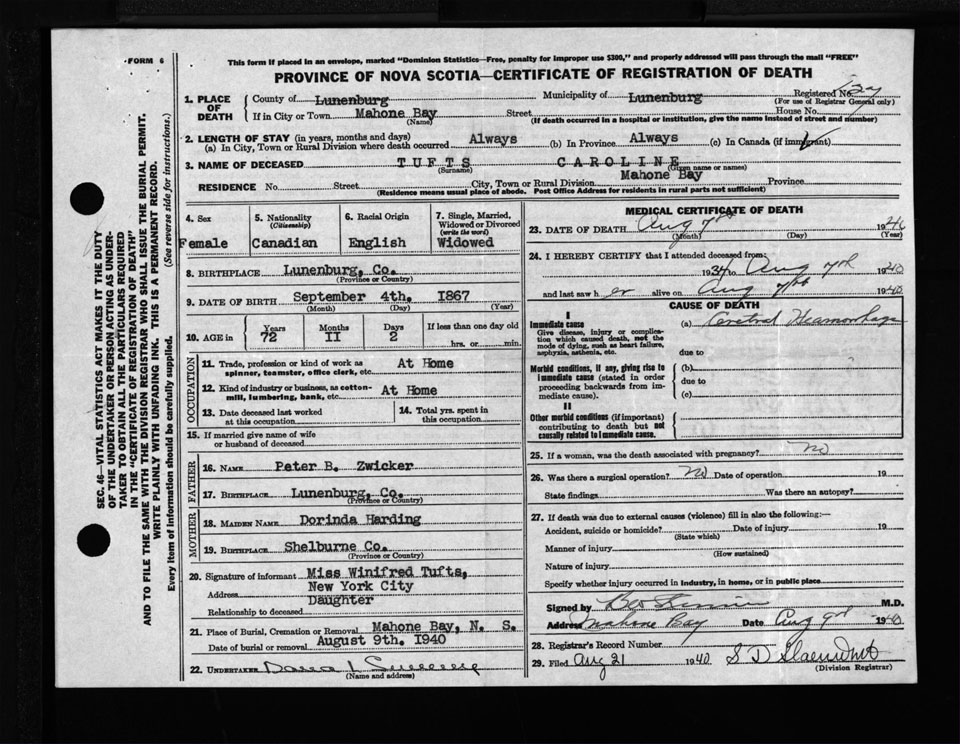 FORM 6
This form if placed in an envelope, marked "Dominion Statistics—Free, penalty for improper use $300," and properly addressed will pass through the mail "FREE"
PROVINCE OF NOVA SCOTIA—CERTIFICATE OF REGISTRATION OF DEATH
SEC. 46—VITAL STATISTICS ACT MAKES IT THE DUTY
OF THE UNDERTAKER OR PERSON ACTING AS UNDER-
TAKER TO OBTAIN ALL THE PARTICULARS REQUIRED
IN THE "CERTIFICATE OF REGISTRATION OF DEATH"
AND TO FILE THE SAME WITH THE DIVISION REGISTRAR WHO SHALL ISSUE THE BURIAL PERMIT.
WRITE PLAINLY WITH UNFADING INK. THIS IS A PERMANENT RECORD.
Every item of Information should be carefully supplied. (See reverse side for instructions.)
1. PLACE OF DEATH
County of Lunenburg Municipality of Lunenburg Registered No.
(For use of Registrar General only)
If in City or Town Mahone Bay Street House No.
(Name) (If death occurred in a hospital or institution, give the name instead of street and number)
2. LENGTH OF STAY (in years, months and days)
(a) In City, Town or Rural Division where death occurred Always (b) In Province Always (c) In Canada (if immigrant)
3. NAME OF DECEASED TUFTS CAROLINE
(Surname) (Given name or names)
RESIDENCE No. Street City, Town or Rural Division Mahone Bay Province
(Residence means usual place of abode. Post Office Address for residents in rural parts not sufficient)
4. Sex
Female
5. Nationality
(Citizenship)
Canadian
6. Racial Origin
English
7. Single, Married,
Widowed or Divorced
(write the word)
Widowed
8. BIRTHPLACE Lunenburg, Co.
(Province or Country)
9. DATE OF BIRTH September 4th, 1867
(Month) (Day) (Year)
10. AGE in Years Months Days If less than one day old
72 II 2 hrs. or min.
OCCUPATION
11. Trade, profession or kind of work as
spinner, teamster, office clerk, etc. At Home
12. Kind of industry or business, as cotton-
mill, lumbering, bank, etc. At Home
13. Date deceased last worked
at this occupation
14. Total yrs. spent in
this occupation
15. If married give name of wife
or husband of deceased
FATHER
16. NAME Peter B. Zwicker
17. BIRTHPLACE Lunenburg, Co.
(Province or Country)
MOTHER
18. MAIDEN NAME Dorinda Harding
19. BIRTHPLACE Shelburne Co.
(Province or Country)
20. Signature of informant Miss Winifred Tufts,
Address New York City
Relationship to deceased Daughter
21. Place of Burial, Cremation or Removal Mahone Bay, N. S.
Date of burial or removal August 9th. 1940
22. UNDERTAKER
(Name and address)
MEDICAL CERTIFICATE OF DEATH
23. DATE OF DEATH Aug 7th 1940
(Month) (Day) (Year)
24. I HEREBY CERTIFY that I attended deceased from:
1934 to Aug 7th 1940
and last saw h er alive on Aug 7th 1940
CAUSE OF DEATH
I
Immediate cause
Give disease, injury or complica-
tion which caused death, not the
mode of dying, such as heart failure,
asphyxia, asthenia, etc.
(a) Cerebral Heamorrhage
due to
Morbid conditions, if any, giving rise to
immediate cause (stated in order
proceeding backwards from im-
mediate cause).
(b)
due to
(c)
II
Other morbid conditions (if important)
contributing to death but not
causally related to immediate cause.
25. If a woman, was the death associated with pregnancy? No
26. Was there a surgical operation? No Date of operation 19
State findings Was there an autopsy?
27. If death was due to external causes (violence) fill in also the following:—
Accident, suicide or homicide? Date of injury 19
(State which)
Manner of injury
(How sustained)
Nature of injury
Specify whether injury occurred in industry, in home, or in public place
Signed by M.D.
Address Mahone Bay Date Aug 9th 1940
28. Registrar's Record Number
29. Filed Aug 21 1940
(Division Registrar)